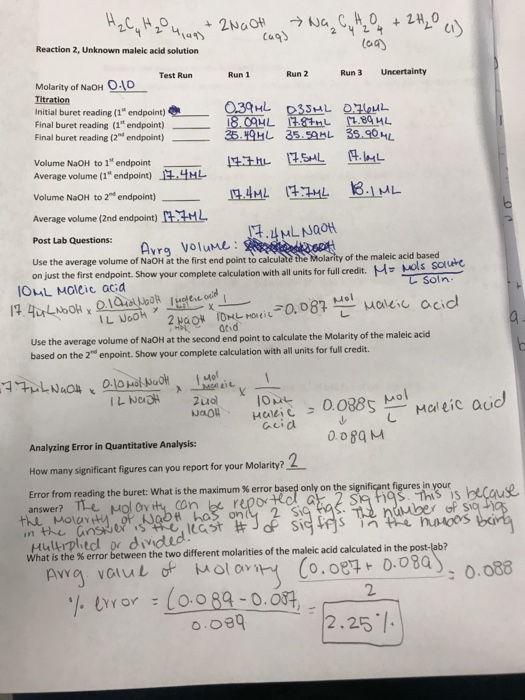 H2C4H2O4(aq) + 2NaOH (aq) → Na2C4H2O4 (aq) + 2H2O (l)
Reaction 2, Unknown maleic acid solution
Test Run Run 1 Run 2 Run 3 Uncertainty
Molarity of NaOH 0.10
Titration
Initial buret reading (1st endpoint) 0.39mL 0.35mL 0.76mL
Final buret reading (1st endpoint) 18.09mL 17.87mL 17.89mL
Final buret reading (2nd endpoint) 35.49mL 35.59mL 35.90mL
Volume NaOH to 1st endpoint 17.7mL 17.5mL 17.1mL
Average volume (1st endpoint) 17.4mL
Volume NaOH to 2nd endpoint) 17.4mL 17.7mL 18.1mL
Average volume (2nd endpoint) 17.7mL
Post Lab Questions: Avrg volume: 17.4mL NaOH
Use the average volume of NaOH at the first end point to calculate the Molarity of the maleic acid based
on just the first endpoint. Show your complete calculation with all units for full credit. M = mols solute / L soln.
10mL Maleic acid
17.4mL NaOH x 0.10mol NaOH / 1L NaOH x 1 maleic acid / 2 NaOH x 1 / 10mL maleic acid = 0.087 mol/L maleic acid
Use the average volume of NaOH at the second end point to calculate the Molarity of the maleic acid
based on the 2nd enpoint. Show your complete calculation with all units for full credit.
17.7mL NaOH x 0.10 mol NaOH / 1L NaOH x 1 mol maleic / 2mol NaOH x 1 / 10mL maleic acid = 0.0885 mol/L maleic acid
↓
0.089 M
Analyzing Error in Quantitative Analysis:
How many significant figures can you report for your Molarity? 2
Error from reading the buret: What is the maximum % error based only on the significant figures in your
answer? The Molarity can be reported at 2 sig figs. This is because
the Molarity of NaOH has only 2 sig figs. The number of sig figs
in the answer is the least # of sig figs in the numbers being
Multiplied or divided.
What is the % error between the two different molarities of the maleic acid calculated in the post-lab?
Avrg. value of Molarity (0.087 + 0.089) / 2 = 0.088
% error = (0.089 - 0.087) / 0.089 = 2.25%